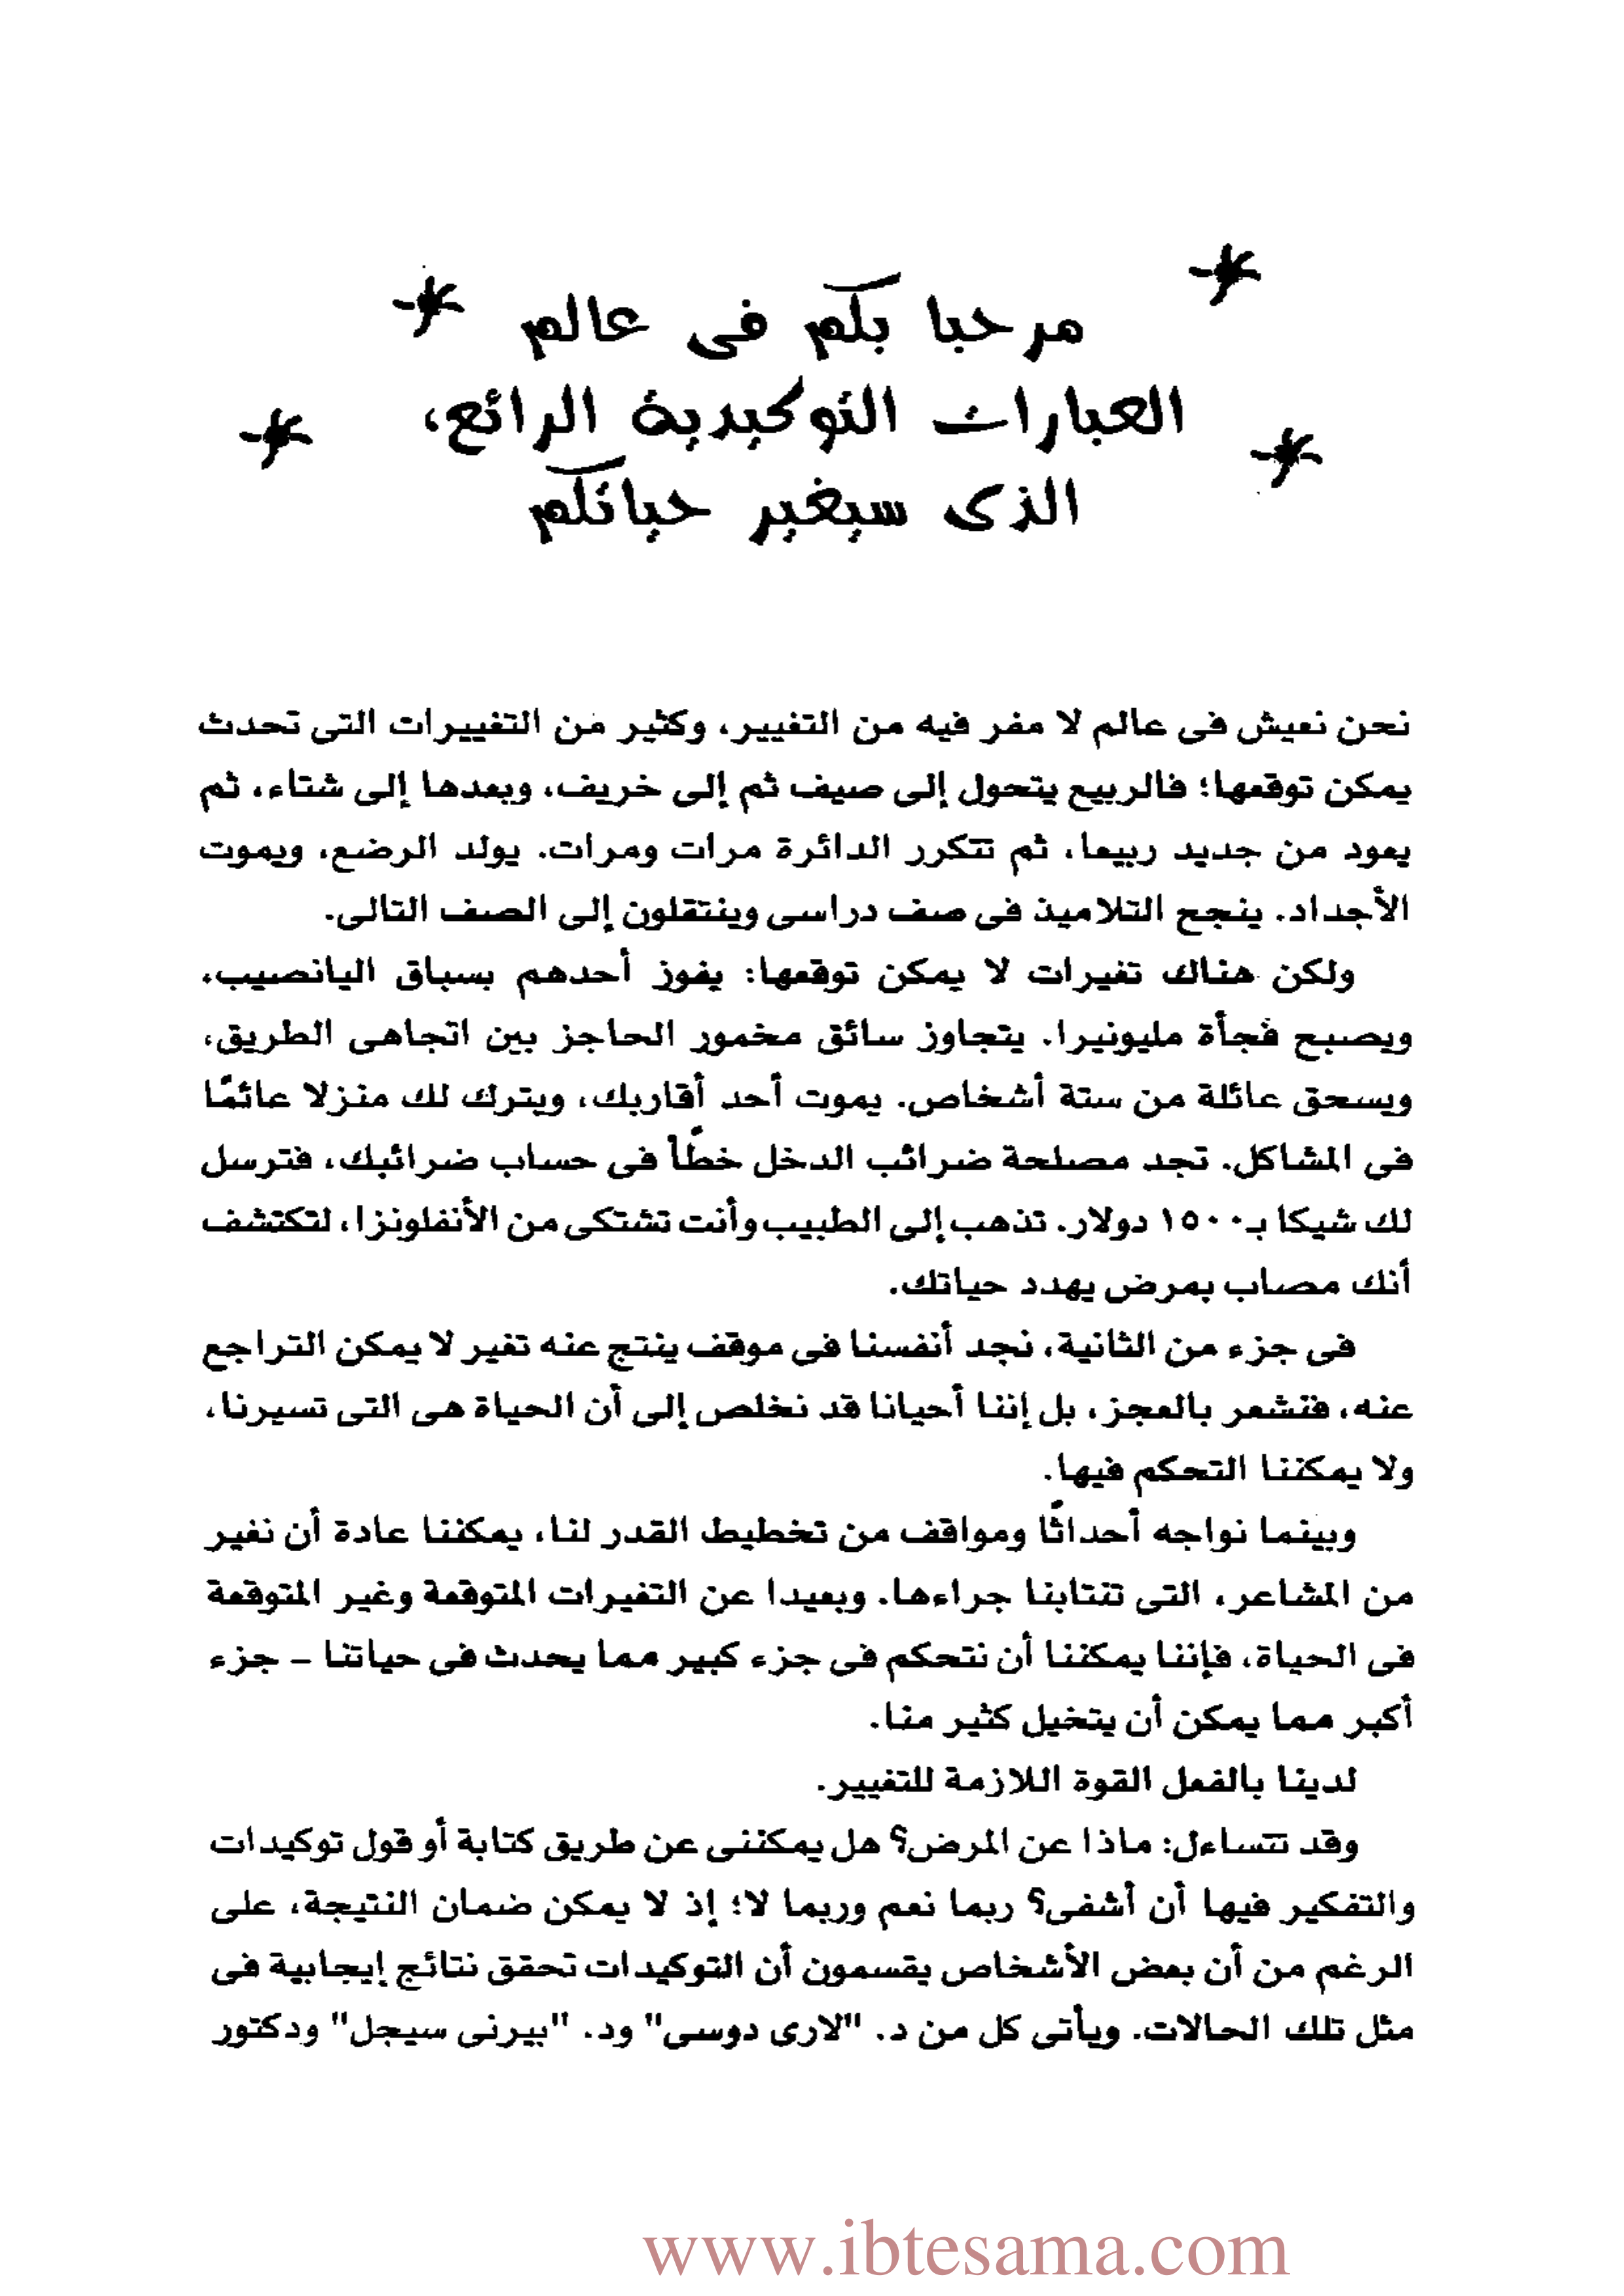 مرحبا بكم فى عالم
العبارات التوكيدية الرائع،
الذى سيغير حياتكم
نحن نعيش فى عالم لا مفر فيه من التغيير، وكثير من التغييرات التى تحدث
يمكن توقعها؛ فالربيع يتحول إلى صيف ثم إلى خريف، وبعدها إلى شتاء، ثم
يعود من جديد ربيعا، ثم تتكرر الدائرة مرات ومرات. يولد الرضع، ويموت
الأجداد. ينجح التلاميذ فى صف دراسى وينتقلون إلى الصف التالى.
ولكن هناك تغيرات لا يمكن توقعها: يفوز أحدهم بسباق اليانصيب،
ويصبح فجأة مليونيرا. يتجاوز سائق مخمور الحاجز بين اتجاهى الطريق،
ويسحق عائلة من ستة أشخاص. يموت أحد أقاربك، ويترك لك منزلا عائمًا
فى المشاكل. تجد مصلحة ضرائب الدخل خطًأ فى حساب ضرائبك، فترسل
لك شيكا بـ١٥٠٠ دولار. تذهب إلى الطبيب وأنت تشتكى من الأنفلونزا، لتكتشف
أنك مصاب بمرض يهدد حياتك.
فى جزء من الثانية، نجد أنفسنا فى موقف ينتج عنه تغير لا يمكن التراجع
عنه، فنشعر بالعجز، بل إننا أحيانا قد نخلص إلى أن الحياة هى التى تسيرنا،
ولا يمكننا التحكم فيها.
وبينما نواجه أحداثًا ومواقف من تخطيط القدر لنا، يمكننا عادة أن نغير
من المشاعر، التى تنتابنا جراءها. وبعيدا عن التغيرات المتوقعة وغير المتوقعة
فى الحياة، فإننا يمكننا أن نتحكم فى جزء كبير مما يحدث فى حياتنا – جزء
أكبر مما يمكن أن يتخيل كثير منا.
لدينا بالفعل القوة اللازمة للتغيير.
وقد تتساءل: ماذا عن المرض؟ هل يمكننى عن طريق كتابة أو قول توكيدات
والتفكير فيها أن أشفى؟ ربما نعم وربما لا؛ إذ لا يمكن ضمان النتيجة، على
الرغم من أن بعض الأشخاص يقسمون أن التوكيدات تحقق نتائج إيجابية فى
مثل تلك الحالات. ويأتى كل من د. "لارى دوسى" ود. "بيرنى سيجل" ودكتور
www.ibtesama.com